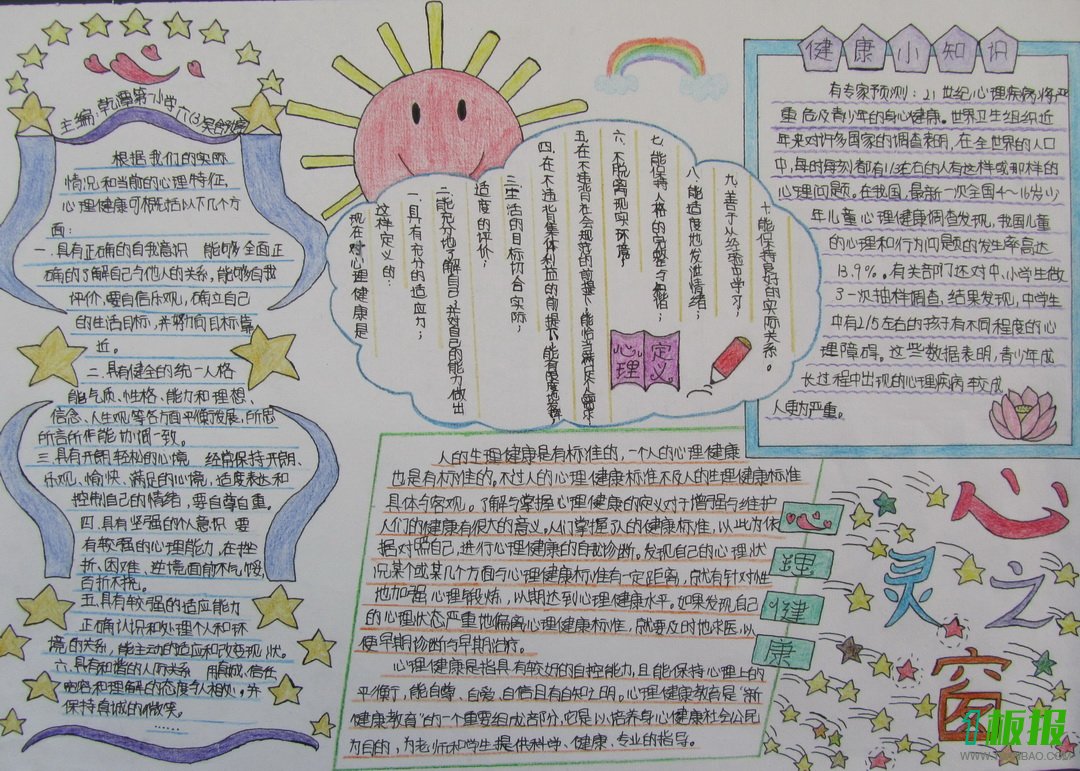 主编:乾潭第一小学
根据我们的实际
情况和当前的心理特征,
心理健康可概括以下几个方
面:
一.具有正确的自我意识 能够全面正
确的了解自己与他人的关系,能够自我
评价,要自信乐观,确立自己
的生活目标,并努力向目标靠
近。
二.具有健全的统一人格
能气质、性格、能力和理想、
信念、人生观等各方面平衡发展,所思
所言所作能协调一致。
三.具有开朗轻松的心境 经常保持开朗、
乐观、愉快、满足的心境,适度表达和
控制自己的情绪,要自尊自重。
四.具有坚强的个人意识 要
有较强的心理能力,在挫
折、困难、逆境面前不气馁,
百折不挠。
五.具有较强的适应能力
正确认识和处理个人和环
境的关系,能主动的适应和改变现状。
六.具有和谐的人际关系 用真诚、信任
和理解的态度与人相处。并
保持真诚的微笑。
……
现在对心理健康是
这样定义的:
一.具有充分的适应力;
二.能充分地了解自己,并对自己的能力做出
适度的评价;
三.生活的目标切合实际;
四.在不违背集体利益的前提下,能有限度地发挥
五.在不违背社会规范的前提下,能恰当满足个人需求
六.不脱离现实环境;
七.能保持人格的完整与和谐;
八.能适度地发泄情绪;
九.善于从经验中学习;
十.能保持良好的实际关系。
心理定义。
健康小知识
有专家预测:21世纪心理疾病将严
重危及青少年的身心健康。世界卫生组织近
年来对许多国家的调查表明,在全世界的人口
中,每时每刻都有1/3左右的人有这样或那样的
心理问题。在我国,最新一次全国4~16岁少
年儿童心理健康调查发现,我国儿童
的心理和行为问题的发生率高达
13.9%。有关部门还对中小学生做
了一次抽样调查,结果发现,中学生
中有2/5左右的孩子有不同程度的心
理障碍。这些数据表明,青少年成
长过程中出现的心理疾病较成
人更为严重。
人的生理健康是有标准的,一个人的心理健康
也是有标准的。不过人的心理健康标准不及人的生理健康标准
具体与客观。了解与掌握心理健康的定义对于增强与维护
人们的健康有很大的意义。人们掌握了人的健康标准,以此为依
据对照自己,进行心理健康的自我诊断。发现自己的心理状
况某个或某几个方面与心理健康标准有一定距离,就有针对性
地加强心理锻炼,以期达到心理健康水平。如果发现自己
的心理状态严重地偏离心理健康标准,就要及时地求医,以
便早期诊断与早期治疗。
心理健康是指具有较好的自控能力,且能保持心理上的
平衡,能自尊、自爱、自信且有自知之明。心理健康教育是“新
健康教育”的一个重要组成部分,它是以培养身心健康社会公民
为目的,为老师和学生提供科学、健康、专业的指导。
理
健
康
心
灵之
窗
板报